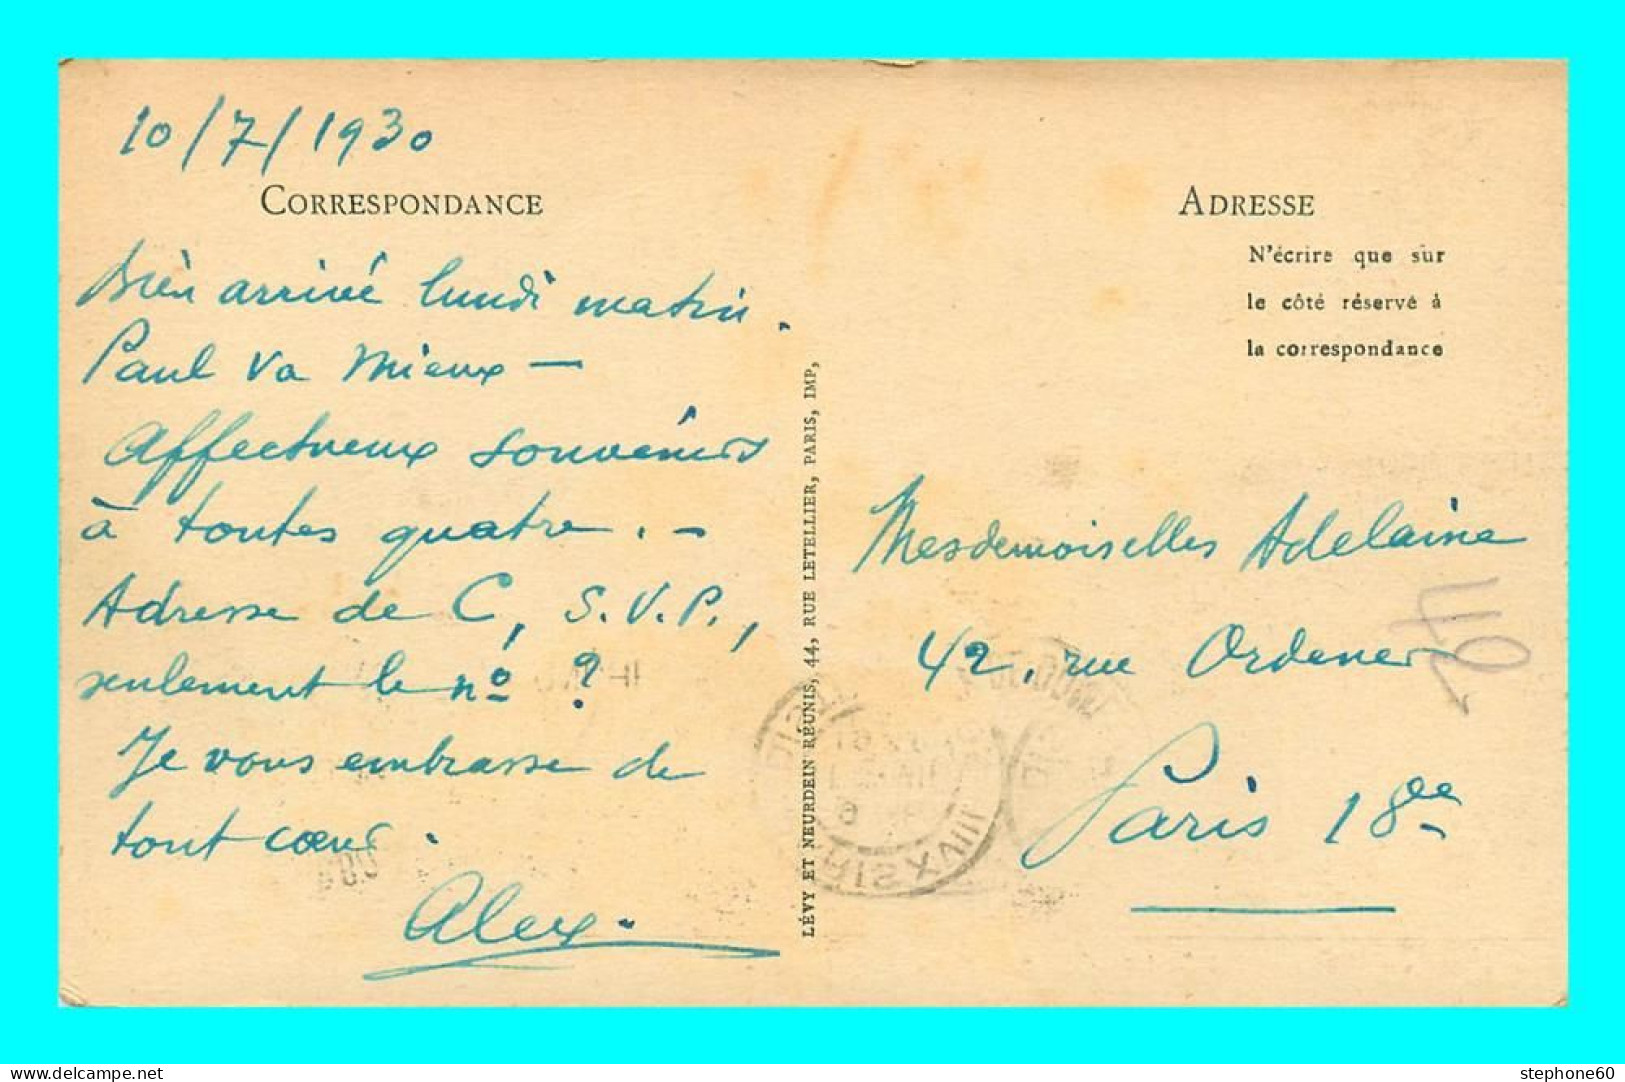 10/7/1930
CORRESPONDANCE
Bien arrivé lundi matin.
Paul va mieux —
Affectueux souvenirs
à toutes quatre. —
Adresse de C, S.V.P.,
seulement le nº ?
Je vous embrasse de
tout cœur.
Alex.
LÉVY ET NEURDEIN RÉUNIS, 44, RUE LETELLIER, PARIS, IMP,
ADRESSE
N'écrire que sur
le côté réservé à
la correspondance
Mesdemoiselles Adelaine
42, rue Ordener
Paris 18e
delcampe.net
stephone60